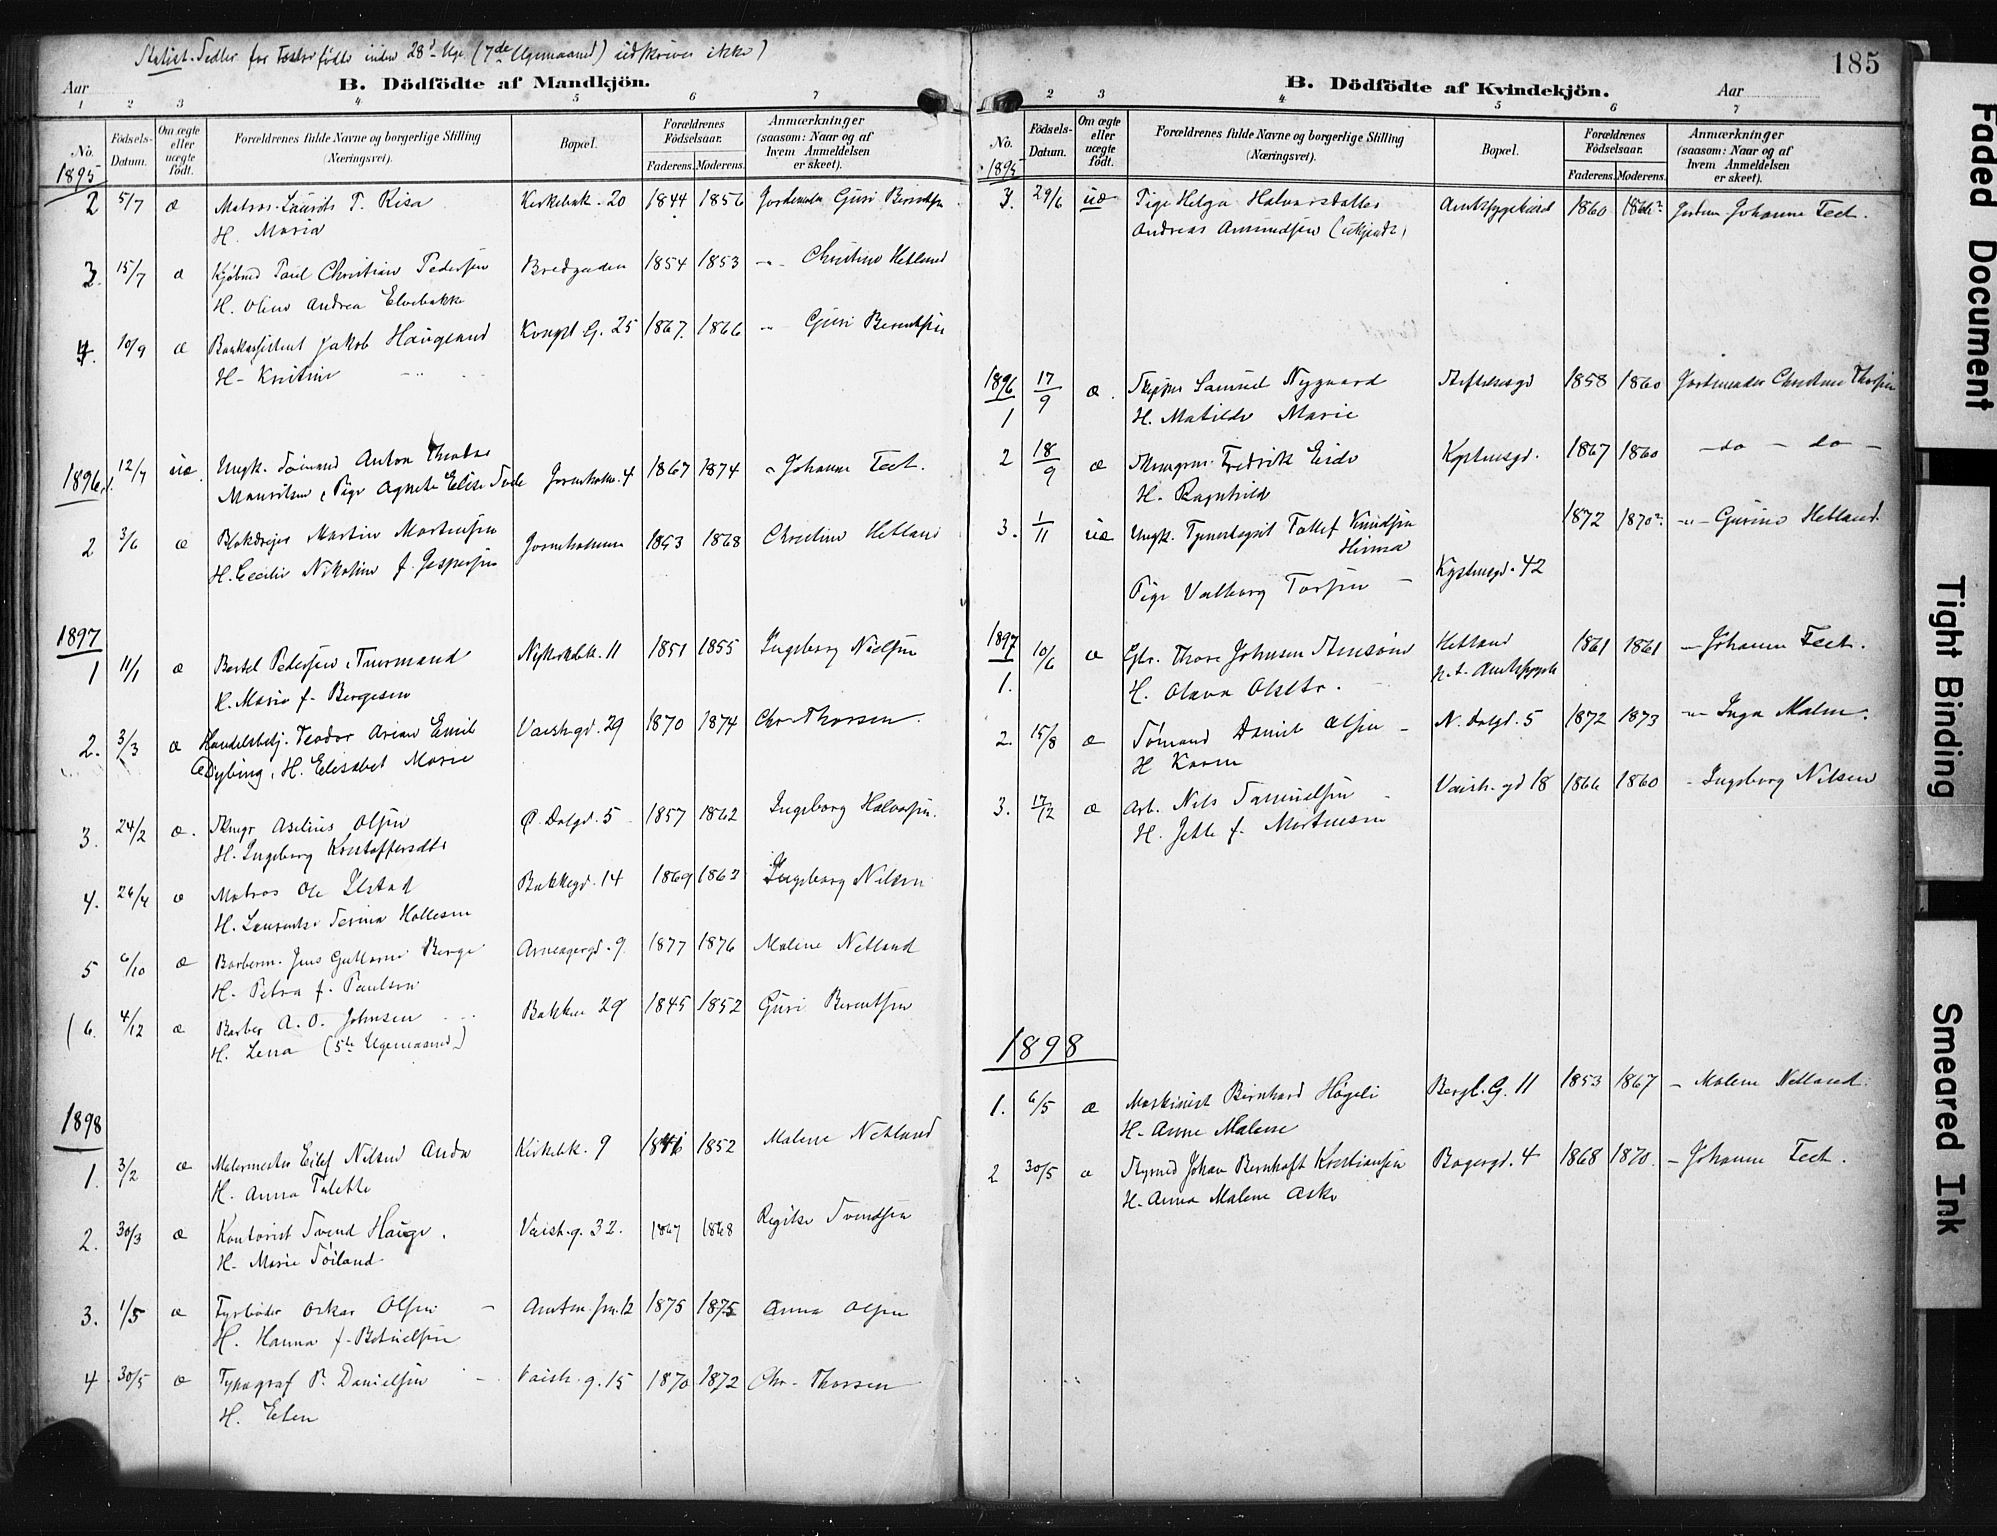 Statist. Sedler for Dødfødte inden 28d Uge (7de Ugemaaned) udskrives ikke)
Aar
B. Dödfödte af Mandkjön.
1 2 3 4 5 6 7
No. Födsels-Datum. Om ægte eller uægte födt. Forældrenes fulde Navne og borgerlige Stilling (Næringsvei). Bopæl. Forældrenes Födselsaar. Faderens. Moderens. Anmærkninger (saasom: Naar og af hvem Anmeldelsen er skeet).
1895
2 5/7 æ Matros Laurits T. Risa Kirkebak. 20 1844 1856 Jordemoder Guri Berentsen
H. Maria
3. 15/7 æ Kjøbmd Paul Christian Pedersen Bredgaden 1854 1853 -"- Christine Hetland
H. Oline Andrea Elvebakke
4. 10/9 æ Bankassistent Jakob Haugland Kongsl G. 25 1867. 1866 " Guri Berentsen
H. Kristine
1896
1. 12/7 uæ. Ungk. Sømand Anton Thodæ Jorenholm. 4 1867 1874 " Johanne Feet.
Mauritsen, Pige Agnete Elise
2 3/6 æ Blokdreier Martin Mortensen Jorenholmen 1853 1868 Christine Hetland
H. Cecilie Nikoline f. Jespersen
1897
1 11/1 æ Bertel Pedersen, Murmand Nykirkebk. 11 1851 1855 Ingeborg Nielsen
H. Maria f. Bergesen
2. 3/3 æ Handelsbetj. Teodor Arian Emil Vaish.gd. 29 1870 1874 Chr. Thorsen.
Dybing, H. Elisabet Marie
3. 24/2 æ. Skmgr Aselius Olsen Ø. Dalgd. 5 1857 1862 Ingeborg Halvorsen.
H. Ingeborg Kristoffersdtr
4. 26/4 æ Matros Ole Ilstad Bakkegd. 14 1869 1862 Ingeborg Nilsen
H. Laurentse Serina Hollesen
5 6/10 æ Barberm. Jens Guttorm Berge Arneagergd. 9. 1877 1876 Malene Netland
H. Petra f. Paulsen
(6. 4/12 æ Barber A. O. Johnsen Bakken 29 1845 1852 Guri Berentsen
H. Lena (5te Ugemaaned)
1898
1. 3/2 æ Malermester Eilef Nilsen Anda Kirkebk. 9 1846 1852 Malene Netland
H. Anna Talette
2. 30/3 æ Kontorist Svend Hauge. Vaish.g. 32. 1867 1868 Regitse Svendsen
H. Marie Söiland
3. 1/5 æ Fyrbøder Oskar Olsen 1875 1875 Anna Olsen
H. Hanna f. Betuelsen
4 30/5 æ Typograf P. Danielsen Vaish.g. 15 1870 1872 Chr. Thorsen
H. Elen
185
B. Dödfödte af Kvindekjön.
Aar
2 3 4 5 6 7
No. Födsels-Datum. Om ægte eller uægte födt. Forældrenes fulde Navne og borgerlige Stilling (Næringsvei). Bopæl. Forældrenes Födselsaar. Faderens. Moderens. Anmærkninger (saasom: Naar og af hvem Anmeldelsen er skeet).
1895
3. 29/6 uæ Pige Helga Halvarsdatter Amtssygehuset 1860 1866? Jordem Johanne Feet.
Andreas Amundsen (ukjendt)
1896
1 17/9 æ. Skipper Samuel Nygaard 1858 1860 Jordmoder Christine Thorsen
H. Matilde Marie
2 18/9 æ Skmgrm. Fredrik Eide Kystensgd. 1867 1860 -do - do-
H. Ragnhild
3. 1/11 uæ Ungk. Tollef Knudsen Hinna 1872 1870? -"- Gurine Hetland.
Pige Valborg Torsen Kystensgd. 42
1897
1. 10/6 æ Gbr. Thore Johnsen Hetland 1861 1861 - Johanne Feet.
H. Olava Olsdtr. p.t. Amtssygeh
2. 15/8 æ Sømand Daniel Olsen N. Dalgd. 5 1872 1873 -"- Inga Malm.
H Karen
3. 17/12 æ Arb. Nils Samuelsen Vaish. gd 18 1866 1860 - Ingeborg Nilsen
H. Jette f. Mortensen
1898
1. 6/5 æ Maskinist Bernhard Høgeli Bergl. G. 11 1853 1867 - Malene Netland.
H. Anne Malene
2 30/5 æ Styrmd Johan Bernhoft Kristiansen Bagergd. 4 1868 1870. - Johanne Feet.
H. Anna Malene Aske
Faded Document
Tight Binding
Smeared Ink